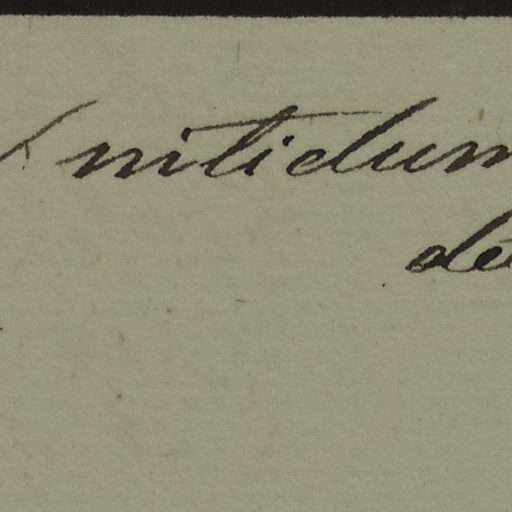 nitidum
de